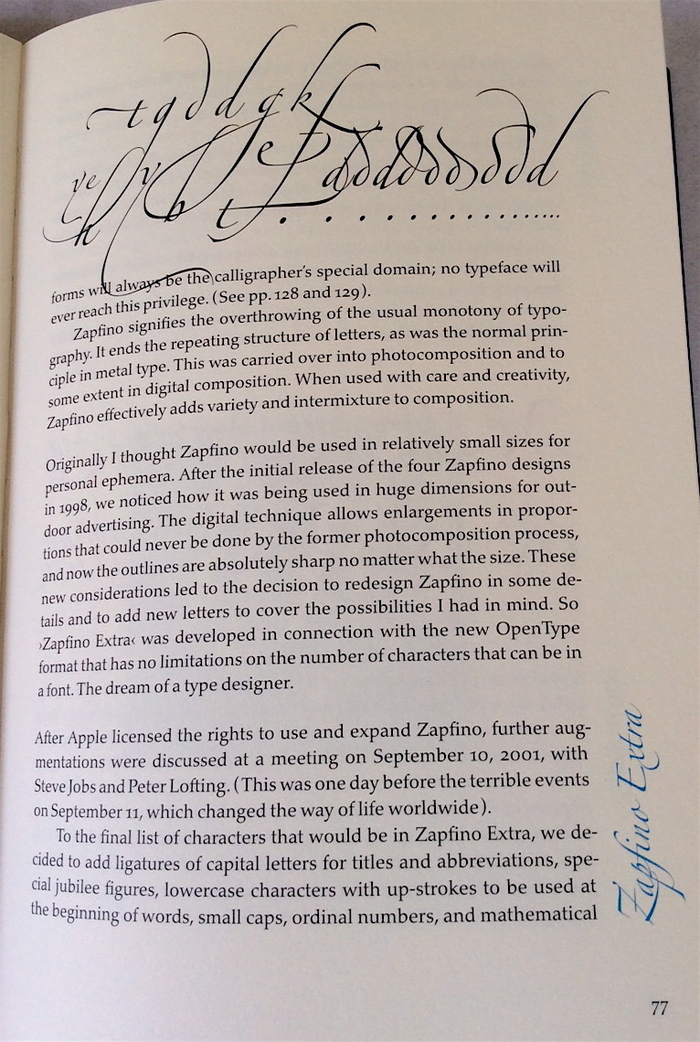 t g d d g k
ve y e d d d d d d d d d
h b t . . . . . . . . . . . . . . . . .
forms will always be the calligrapher's special domain; no typeface will
ever reach this privilege. (See pp. 128 and 129).
Zapfino signifies the overthrowing of the usual monotony of typo-
graphy. It ends the repeating structure of letters, as was the normal prin-
ciple in metal type. This was carried over into photocomposition and to
some extent in digital composition. When used with care and creativity,
Zapfino effectively adds variety and intermixture to composition.
Originally I thought Zapfino would be used in relatively small sizes for
personal ephemera. After the initial release of the four Zapfino designs
in 1998, we noticed how it was being used in huge dimensions for out-
door advertising. The digital technique allows enlargements in propor-
tions that could never be done by the former photocomposition process,
and now the outlines are absolutely sharp no matter what the size. These
new considerations led to the decision to redesign Zapfino in some de-
tails and to add new letters to cover the possibilities I had in mind. So
›Zapfino Extra‹ was developed in connection with the new OpenType
format that has no limitations on the number of characters that can be in
a font. The dream of a type designer.
After Apple licensed the rights to use and expand Zapfino, further aug-
mentations were discussed at a meeting on September 10, 2001, with
Steve Jobs and Peter Lofting. (This was one day before the terrible events
on September 11, which changed the way of life worldwide).
To the final list of characters that would be in Zapfino Extra, we de-
cided to add ligatures of capital letters for titles and abbreviations, spe-
cial jubilee figures, lowercase characters with up-strokes to be used at
the beginning of words, small caps, ordinal numbers, and mathematical
Zapfino Extra
77